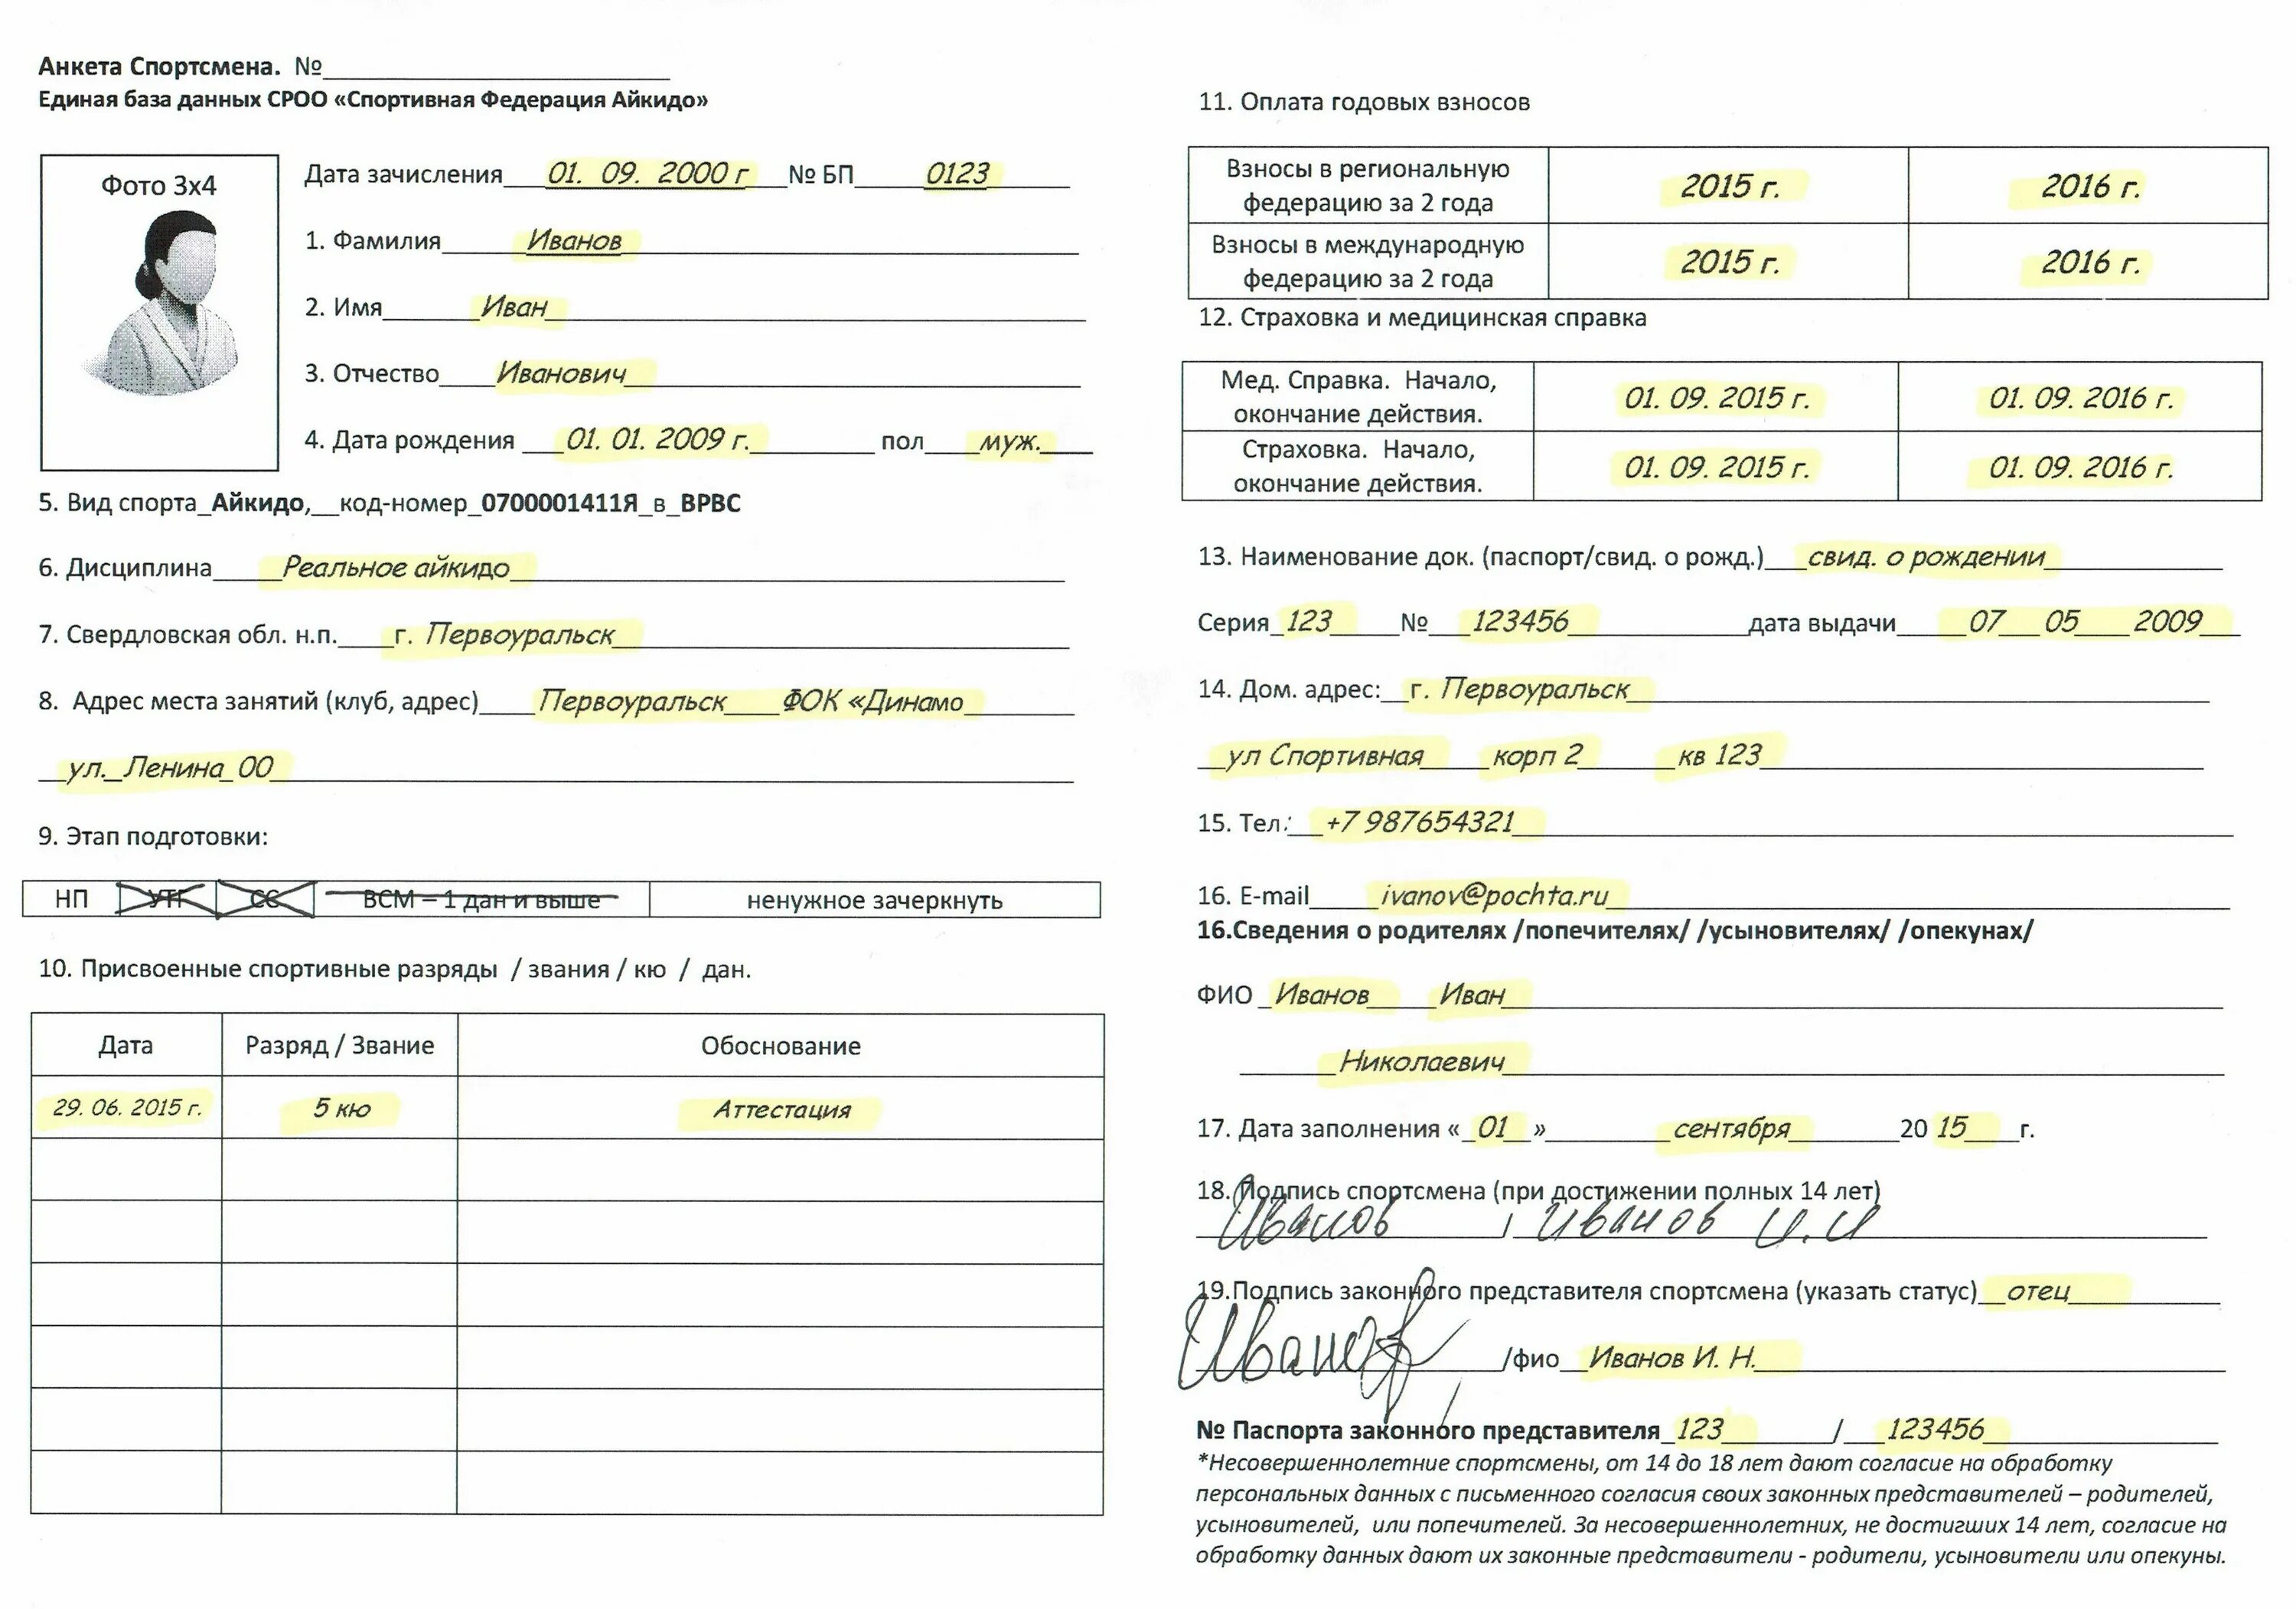 Анкета Спортсмена. №
Единая база данных СРОО «Спортивная Федерация Айкидо»
Фото 3х4
Дата зачисления 01. 09. 2000 г № БП 0123
1. Фамилия Иванов
2. Имя Иван
3. Отчество Иванович
4. Дата рождения 01. 01. 2009 г. пол муж.
5. Вид спорта_Айкидо,__код-номер_0700001411Я_в_ВРВС
6. Дисциплина Реальное айкидо
7. Свердловская обл. н.п. г. Первоуральск
8. Адрес места занятий (клуб, адрес) Первоуральск ФОК «Динамо
ул. Ленина 00
9. Этап подготовки:
НП УТГ СС ВСМ – 1 дан и выше ненужное зачеркнуть
10. Присвоенные спортивные разряды / звания / кю / дан.
Дата Разряд / Звание Обоснование
29. 06. 2015 г. 5 кю Аттестация
11. Оплата годовых взносов
Взносы в региональную
федерацию за 2 года 2015 г. 2016 г.
Взносы в международную
федерацию за 2 года 2015 г. 2016 г.
12. Страховка и медицинская справка
Мед. Справка. Начало,
окончание действия. 01. 09. 2015 г. 01. 09. 2016 г.
Страховка. Начало,
окончание действия. 01. 09. 2015 г. 01. 09. 2016 г.
13. Наименование док. (паспорт/свид. о рожд.) свид. о рождении
Серия 123 № 123456 дата выдачи 07 05 2009
14. Дом. адрес: г. Первоуральск
ул Спортивная корп 2 кв 123
15. Тел: +7 987654321
16. E-mail ivanov@pochta.ru
16.Сведения о родителях /попечителях/ /усыновителях/ /опекунах/
ФИО Иванов Иван
Николаевич
17. Дата заполнения « 01 » сентября 20 15 г.
18. Подпись спортсмена (при достижении полных 14 лет)
Иванов / Иванов И.И
19.Подпись законного представителя спортсмена (указать статус) отец
Иванов /фио Иванов И. Н.
№ Паспорта законного представителя 123 / 123456
*Несовершеннолетние спортсмены, от 14 до 18 лет дают согласие на обработку
персональных данных с письменного согласия своих законных представителей – родителей,
усыновителей, или попечителей. За несовершеннолетних, не достигших 14 лет, согласие на
обработку данных дают их законные представители - родители, усыновители или опекуны.